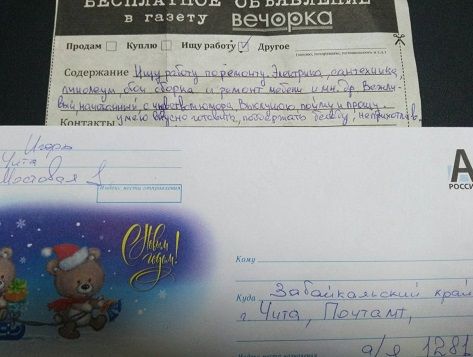 БЕСПЛАТНОЕ ОБЪЯВЛЕНИЕ
в газету вечорка
Продам Куплю Ищу работу Другое
Содержание Ищу работу по ремонту. Электрика, сантехника,
линолеум, обои сборка и ремонт мебели и мн. др. Вежли-
вый, начитанный, с чувством юмора. Выслушаю, пойму и прощу.
умею вкусно готовить, поддержать беседу, неприхотлив.
Контакты
Игорь
Чита
Мостовая
Индекс места отправления
С Новым
годом!
А
РОССИ
Кому
Куда Забайкальский край
г. Чита, Почтамт,
а/я 1281